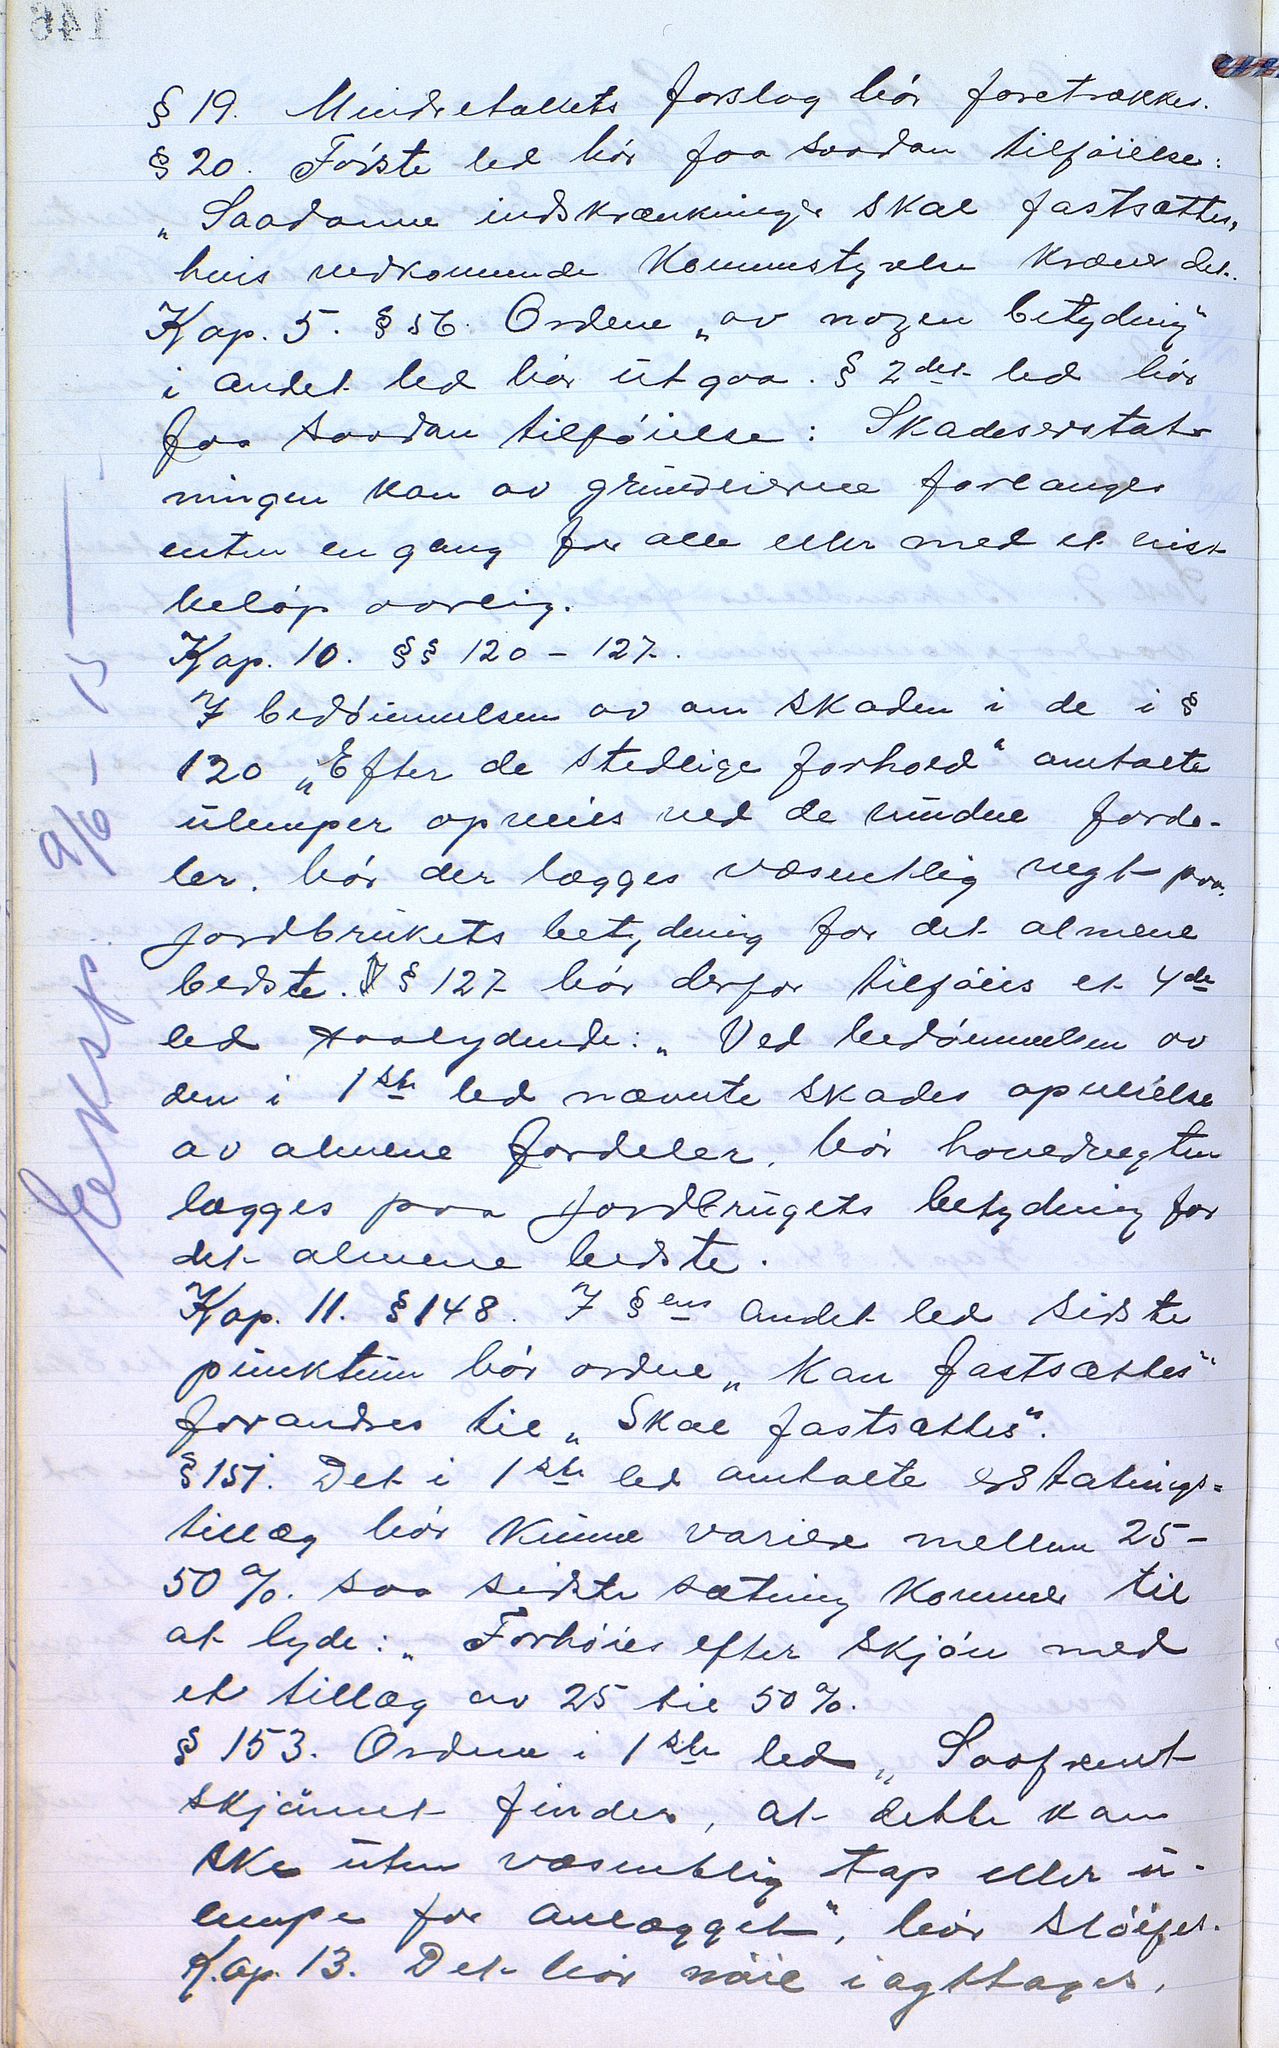 § 19. Mindretallets forslag bör foretrækkes.
§ 20. Förste led bör faa saadan tilföielse:
„Saadanne indskrænkninger skal fastsættes,
hvis vedkommende Kommustyrelse kræver det.
Kap. 5. § 56. Ordene „av nogen betydning"
i andet led bör utgaa. § 2det led bör
faa saadan tilföielse: Skadeserstat-
ningen kan av grundeierne forlanges
enten en gang for alle eller med et visst
belöp aarlig.
Kap. 10. §§ 120 – 127.
I bedömmelsen av om skaden i de i §
120 „Efter de stedlige forhold" omtalte
ulemper opveies ved de vundne forde-
ler, bör der lægges væsentlig vegt paa
jordbrukets betydning for det almene
bedste. I § 127 bör derfor tilföies et 4de
led saalydende: „Ved bedömmelsen av
den i 1ste led nævnte skades opveielse
av almene fordeler, bör hovedvegten
lægges paa jordbrugets betydning for
det almene bedste.
Kap. 11. § 148. I §ens andet led sidste
punktum bör ordene „Kan fastsættes"
forandres til „Skal fastsættes".
§ 151. Det i 1ste led omtalte erstatnings-
tillæg bör kunne variere mellem 25-
50%. saa sidste sætning kommer til
at lyde: „Forhöies efter skjön med
et tillæg av 25 til 50%.
§ 153. Ordene i 1ste led „Saafremt
skjönnet finder, at dette kan
ske uten væsentlig tap eller u-
lempe for anlægget", bör slöifes.
Kap. 13. Det bör nöie iagttages,
Eksp. 9/6 – 15
146